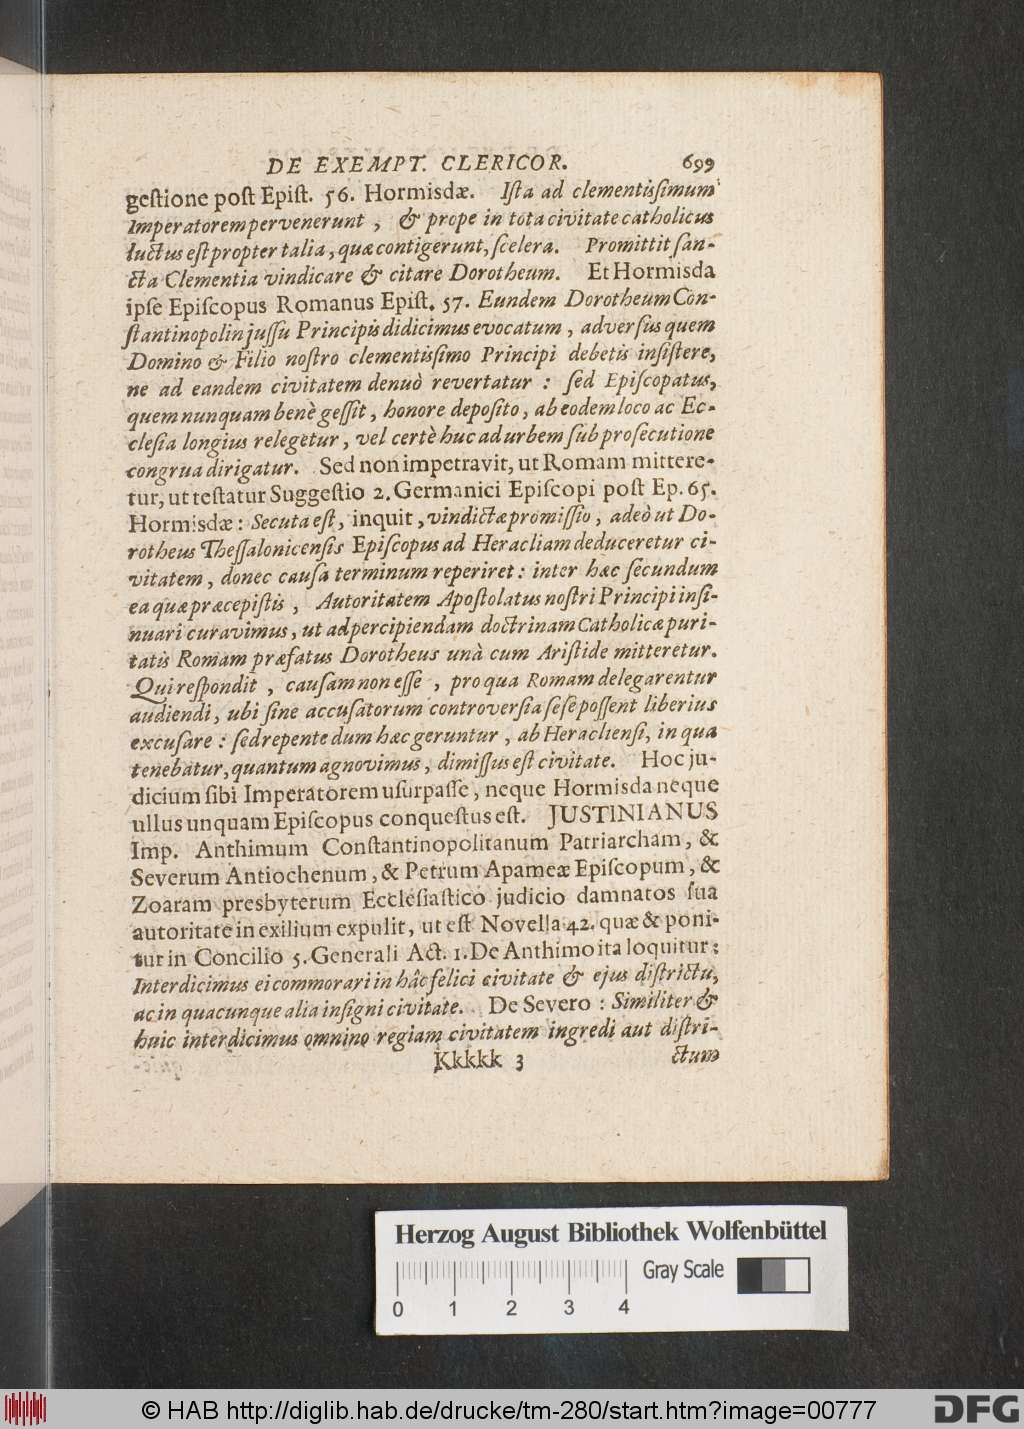 DE EXEMPT. CLERICOR. 699
geſtione poſt Epiſt. 56. Hormisdæ. Iſta ad clementiſsimum
Imperatorem pervenerunt, & prope in tota civitate catholicus
luctus eſt propter talia, quæ contigerunt, ſcelera. Promittit ſan-
cta Clementia vindicare & citare Dorotheum. Et Hormisda
ipſe Epiſcopus Romanus Epiſt. 57. Eundem Dorotheum Con-
ſtantinopolin juſſu Principis didicimus evocatum, adverſus quem
Domino & Filio noſtro clementiſsimo Principi debetis inſiſtere,
ne ad eandem civitatem denuò revertatur: ſed Epiſcopatus,
quem nunquam benè geſſit, honore depoſito, ab eodem loco ac Ec-
cleſia longius relegetur, vel certè huc ad urbem ſub proſecutione
congrua dirigatur. Sed non impetravit, ut Romam mittere-
tur, ut teſtatur Suggeſtio 2. Germanici Epiſcopi poſt Ep. 65.
Hormisdæ: Secuta eſt, inquit, vindictæ promiſſio, adeò ut Do-
rotheus Theſſalonicenſis Epiſcopus ad Heracliam deduceretur ci-
vitatem, donec cauſa terminum reperiret: inter hæc ſecundum
ea quæ præcepiſtis, Autoritatem Apoſtolatus noſtri Principi inſi-
nuari curavimus, ut ad percipiendam doctrinam Catholicæ puri-
tatis Romam præfatus Dorotheus unà cum Ariſtide mitteretur.
Qui reſpondit, cauſam non eſſe, pro qua Romam delegarentur
audiendi, ubi ſine accuſatorum controverſia ſeſe poſſent liberius
excuſare: ſed repente dum hæc geruntur, ab Heraclienſi, in qua
tenebatur, quantum agnovimus, dimiſſus eſt civitate. Hoc ju-
dicium ſibi Imperatorem uſurpaſſe, neque Hormisda neque
ullus unquam Epiſcopus conqueſtus eſt. JUSTINIANUS
Imp. Anthimum Conſtantinopolitanum Patriarcham, &
Severum Antiochenum, & Petrum Apameæ Epiſcopum, &
Zoaram presbyterum Eccleſiaſtico judicio damnatos ſua
autoritate in exilium expulit, ut eſt Novella 42. quæ & poni-
tur in Concilio 5. Generali Act. 1. De Anthimo ita loquitur:
Interdicimus ei commorari in hâc felici civitate & ejus diſtrictu,
ac in quacunque alia inſigni civitate. De Severo: Similiter &
huic interdicimus omnino regiam civitatem ingredi aut diſtri-
Kkkkk 3 ctum
Herzog August Bibliothek Wolfenbüttel
Gray Scale
0 1 2 3 4
© HAB http://diglib.hab.de/drucke/tm-280/start.htm?image=00777
DFG